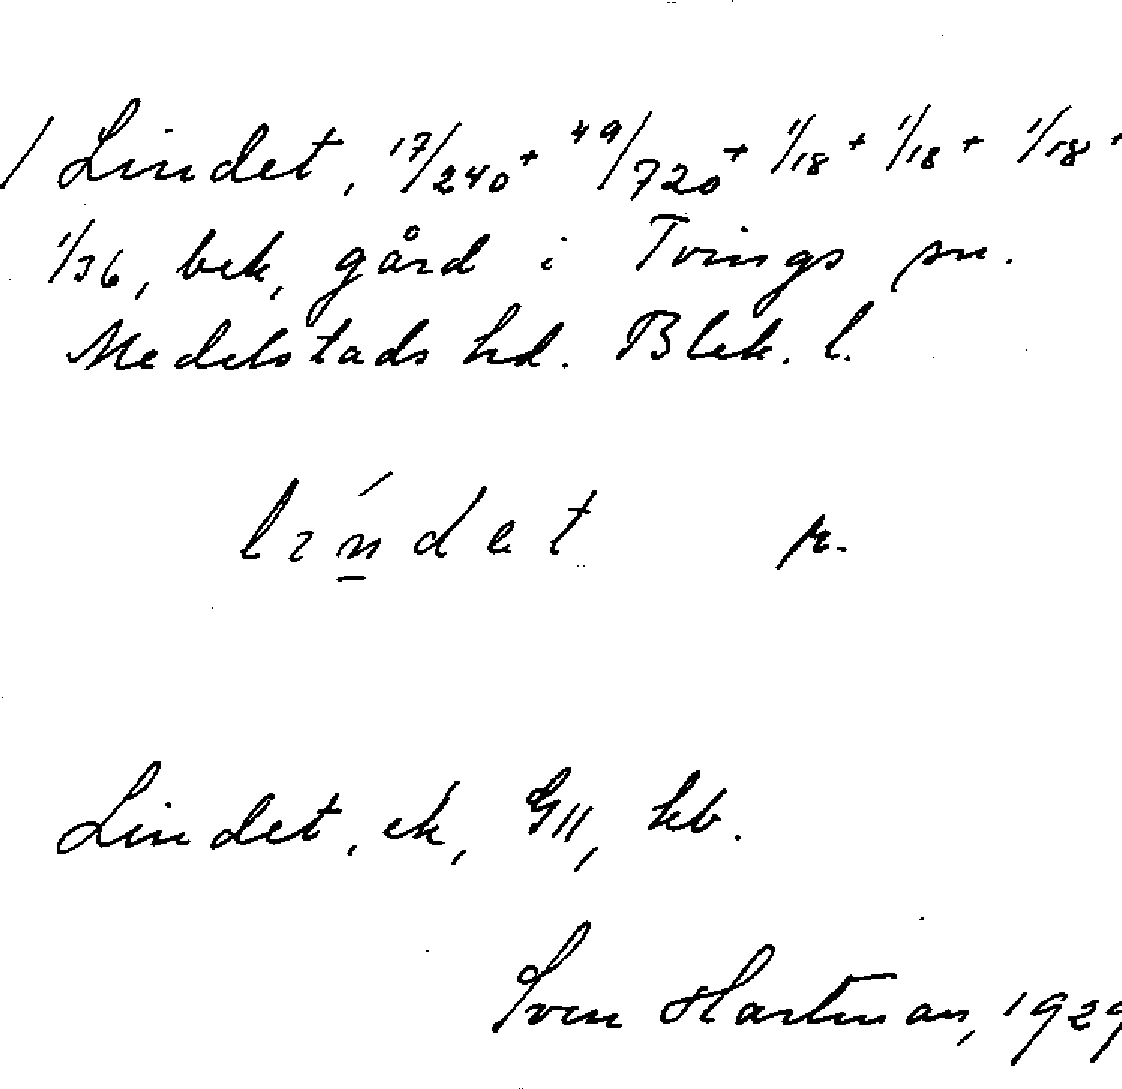 / Lindet, 17/240 + 49/720 + 1/18 + 1/18 + 1/18 +
1/36, bek, gård i Tvings sn.
Medelstads hd. Blek. l.
lɩńdet
Lindet, ek, GII, kb.
Sven Hartman, 1929